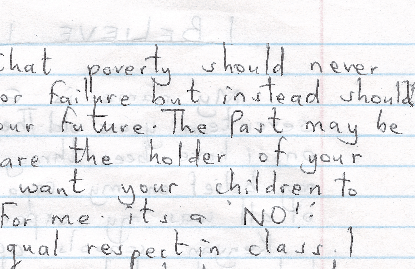 that poverty should never
or failure but instead should
our future. The Past may be
are the holder of your
want your children to
For me it's a 'NO!'
qual respect in class. I